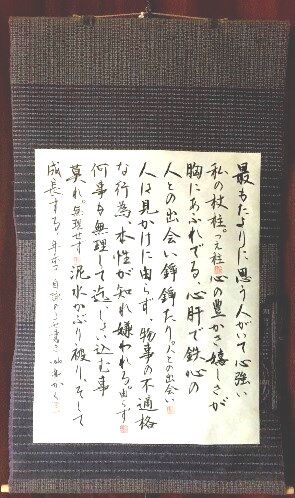 最もたよりに思う人がいて心強い
私の杖柱。つえ柱 心豊かさ嬉しさが
胸にあふれでる、心肝で鉄心の
人との出会い錚錚たり。人との出会い
人は見かけに由らず、物事の不適格
な行為、本性が知れ嫌われる。由らず
何事も無理して迄しょい込む事
莫れ。無理せず 泥水かぶり破り、そして
成長する。